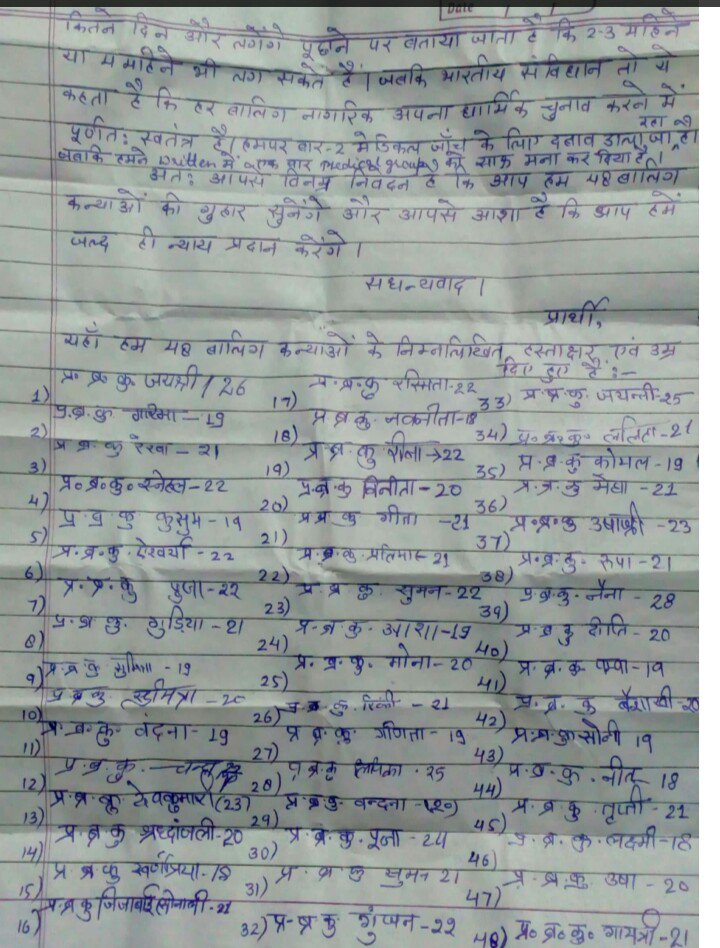 Date
कितने दिन और लगेंगे पूछने पर बताया जाता है कि 2-3 महिने
या 4 महिने भी लग सकते हैं। जबकि भारतीय संविधान तो ये
कहता है कि हर बालिग नागरिक अपना धार्मिक चुनाव करने में
पूर्णतः स्वतंत्र है। हमपर बार-2 मेडिकल जाँच के लिए दबाव डाला जा रहा है
जबकि हमने written में बार medical को साफ मना कर दिया है।
अतः आपसे विनम्र निवेदन है कि आप हम 48 बालिग
कन्याओं की गुहार सुनेंगे और आपसे आशा है कि आप हमें
जल्द ही न्याय प्रदान करेंगे।
सधन्यवाद।
प्रार्थी,
यहाँ हम 48 बालिग कन्याओं के निम्नलिखित हस्ताक्षर एवं उम्र
दिए हुए है:-
1) प्र. ब्र. कु. जयश्री / 26
2) प्र.ब्र.कु. गरिमा - 19
3) प्र ब्र कु रेखा - 21
4) प्र० ब्र० कु० स्नेहल - 22
5) प्र ब्र कु कुसुम - 19
6) प्र. ब्र. कु. ऐश्वर्या - 22
7) प्र. ब्र. कु पुजा - 22
8) प्र. ब्र कु. गुड़िया - 21
9) प्र.ब्र.कु - 19
10) प्र ब्र कु - 20
11) प्र. ब्र. कु. वंदना - 19
12) प्र. ब्र. कु.
13) प्र. ब्र. कु. देवकुमारी (23)
14) प्र. ब्र. कु श्रध्दांजली - 20
15) प्र ब्र कु स्वर्णप्रिया - 18
16) प्र.ब्र कु जिजाबाई सोनाली - 21
17) प्र. ब्र. कु रस्मिता - 22
18) प्र ब्र कु. नवनीता - 18
19) प्र. ब्र. कु रीना → 22
20) प्र. ब्र. कु विनीता - 20
21) प्र ब्र कु गीता - 21
22) प्र. ब्र. कु. प्रतिमा - 21
23) प्र. ब्र कु. सुमन - 22
24) प्र. ब्र कु. आशा - 19
25) प्र. ब्र. कु. मोना - 20
26) प्र ब्र कु. - 21
27) प्र ब्र. कु. - 19
28) प्र ब्र कु - 25
29) प्र ब्र कु. वन्दना - (20)
30) प्र. ब्र. कु. पूजा - 24
31) प्र. ब्र कु सुमन 21
32) प्र - ब्र कु गुंजन - 22
33) प्र. ब्र. कु. जयन्ती - 25
34) प्र. ब्र. कु. ललिता - 21
35) प्र. ब्र. कु कोमल - 19
36) प्र. ब्र. कु मेघा - 21
37) प्र० ब्र० कु उषाश्री - 23
38) प्र. ब्र. कु. रूपा - 21
39) प्र. ब्र. कु. नैना - 28
40) प्र. ब्र कु दीप्ति - 20
41) प्र. ब्र. कु पम्पा - 19
42) प्र. ब्र. कु वैशाखी - 20
43) प्र. ब्र. कु सोनी 19
44) प्र. ब्र. कु. नीतू 18
45) प्र. ब्र कु. तृप्ती - 21
46) प्र. ब्र. कु. लक्ष्मी - 18
47) प्र. ब्र. कु. उषा - 20
48) प्र० ब्र० कु० गायत्री - 21